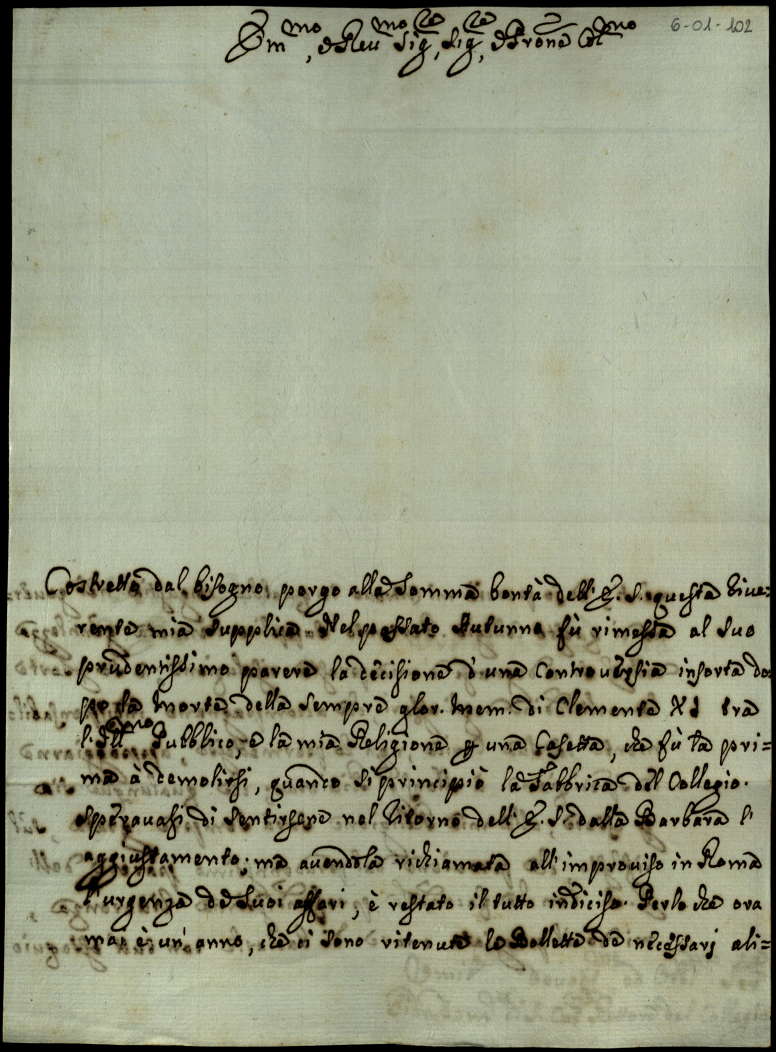 6-01-102
Em.mo, e Reu.mo Sig.re, Sig.re, e Prone Col.mo
Costretto dal bisogno porgo alla somma bontà dell'E. S. questa riue=
rente mia supplica. Nel passato Autunno fù rimessa al suo
prudentissimo parere la decisione d'una controuersia insorta do=
po la morte della sempre glor. mem. di Clemente XI tra
l'Ill.mo Pubblico, e la mia Religione p una Casetta, che fù la pri=
ma à demolirsi, quando si principiò la Fabbrica del Collegio.
Sperauasi di sentirsene nel ritorno dell'E. S. dalla Barbara l'
aggiustamento; ma auendola richiamata all'improuiso in Roma
l'urgenza de suoi affari, è restato il tutto indiciso. Perlo che ora
mai è un' anno, che ci sono ritenute le Bollette de necessarj ali=